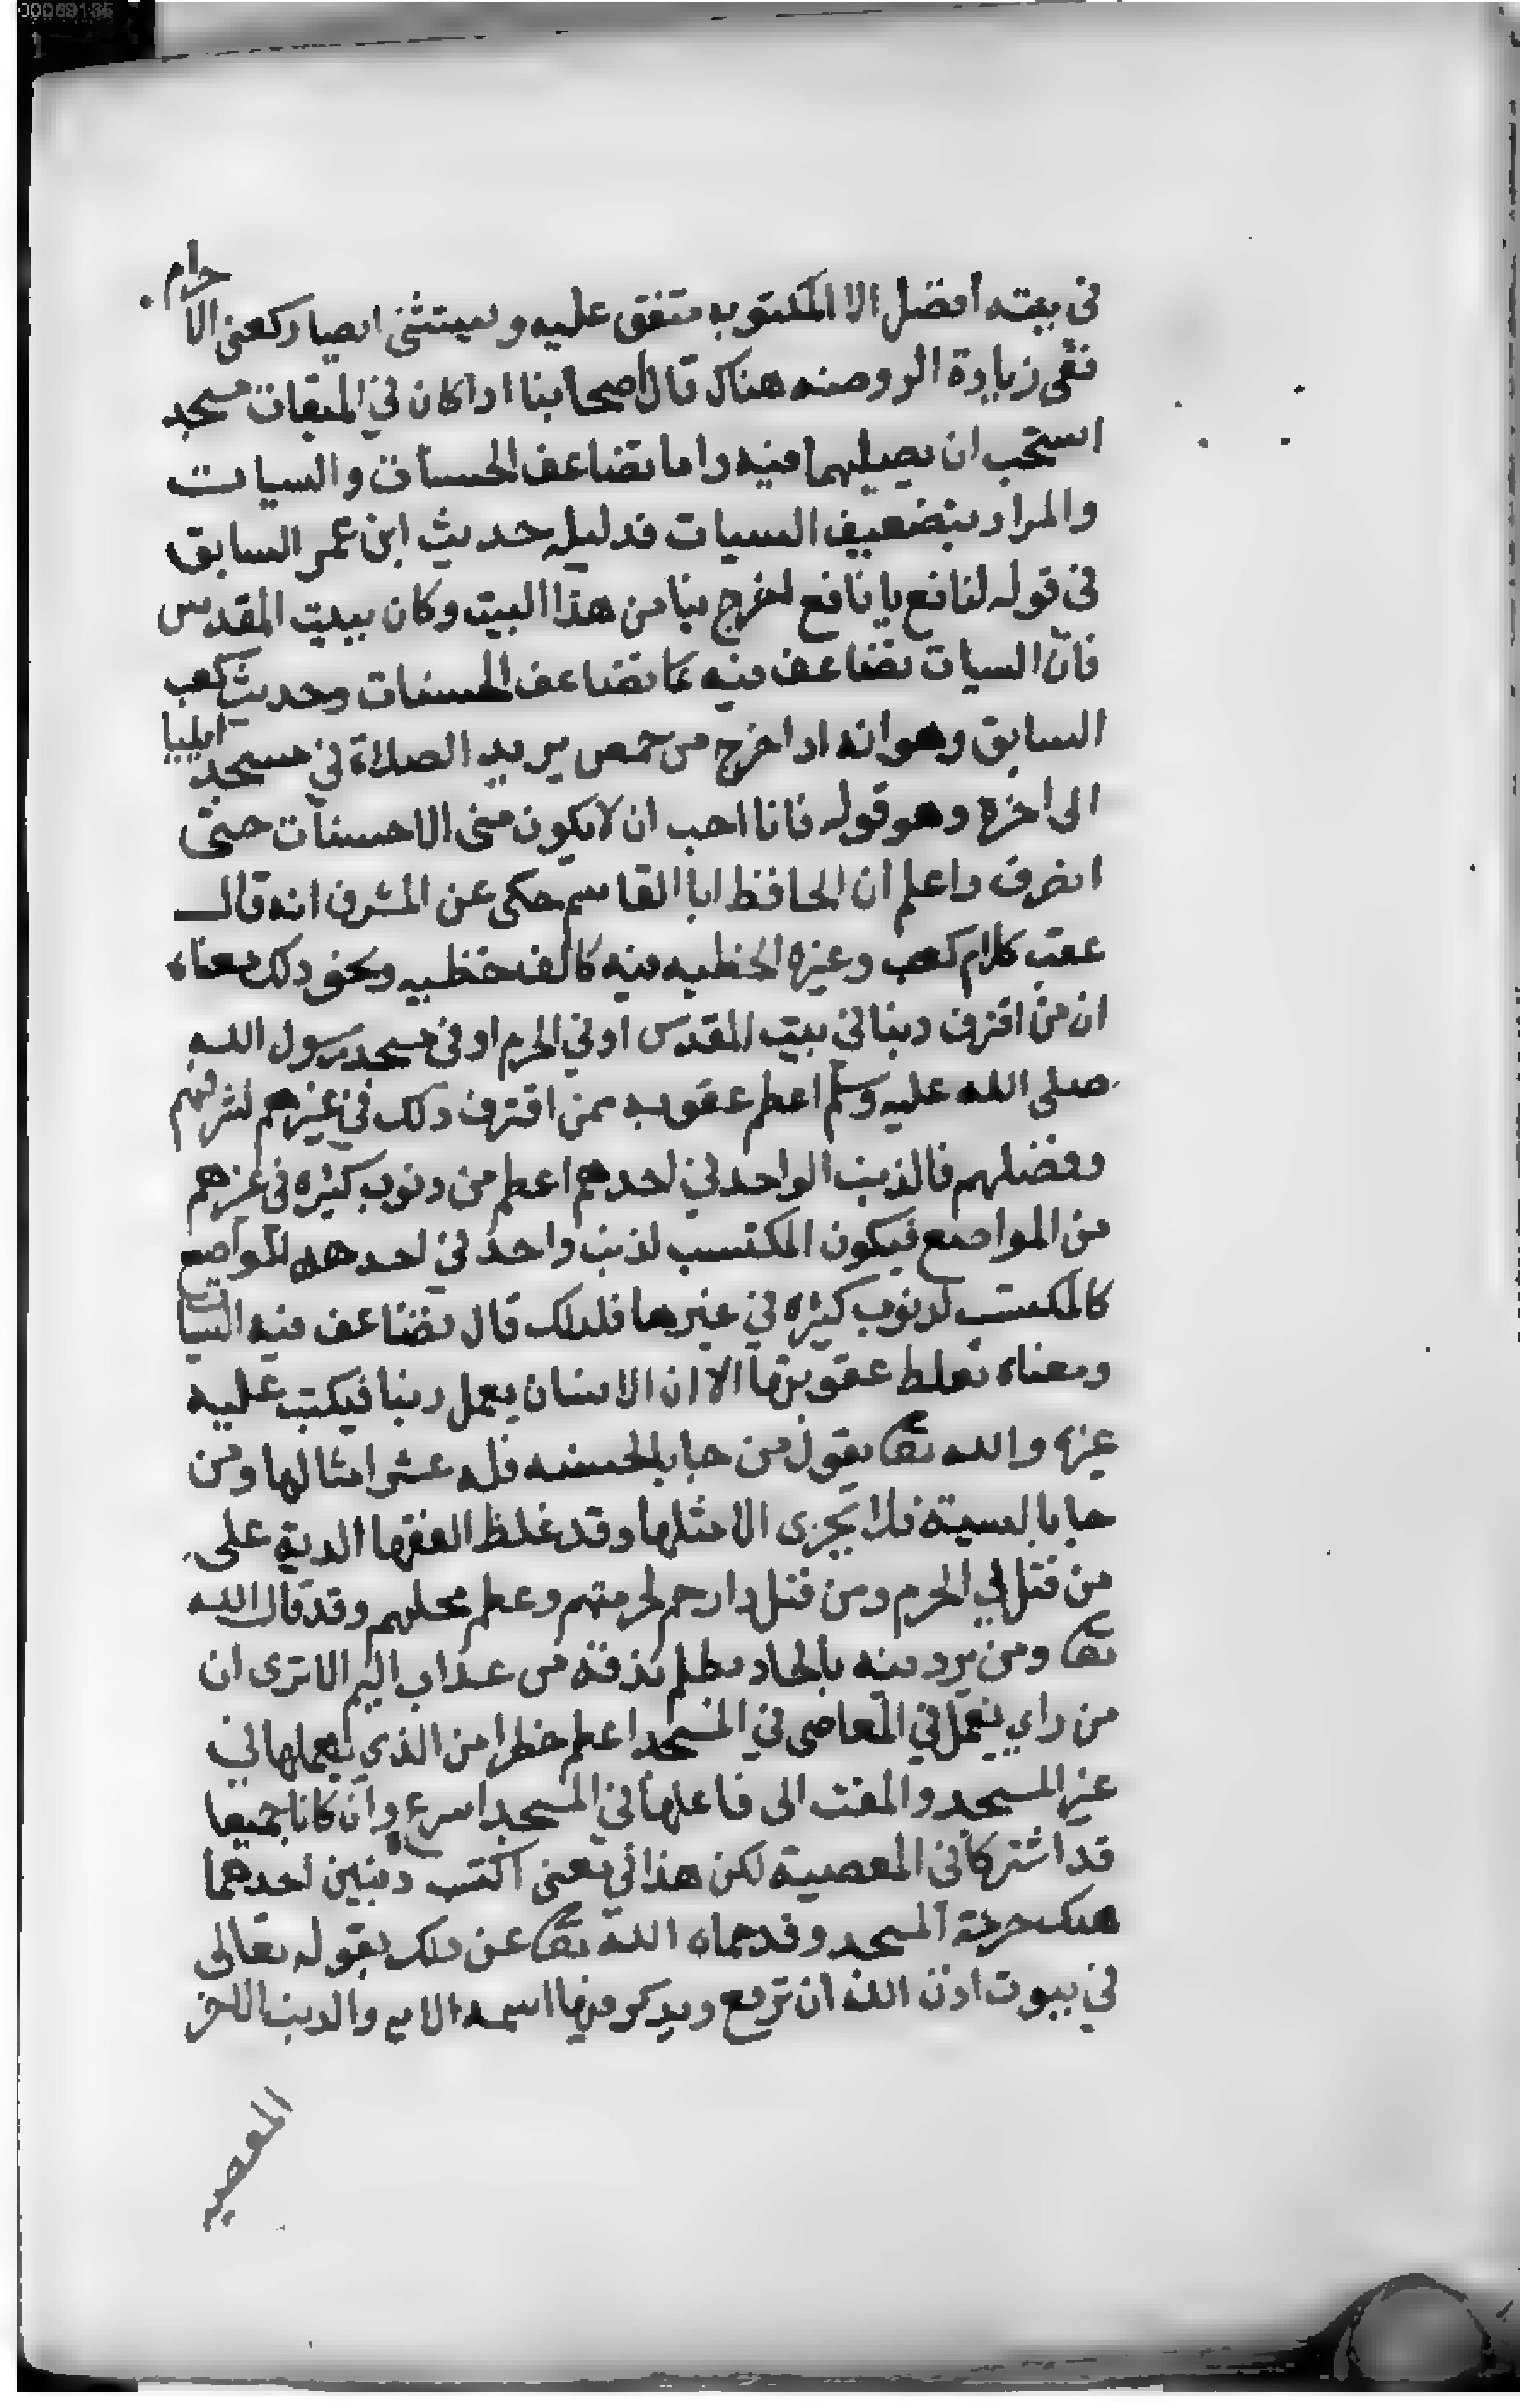 00069135
في بيته أفضل الا المكتوبه متفق عليه ويستثنى ايضا ركعتي الاحرام
ففي زيادة الروضه هناك قال اصحابنا اذا كان في الميقات مسجد
استحب ان يصليهما فيه واما تضاعف الحسنات والسيات
والمراد بتضعيف السيات فدليله حديث ابن عمر السابق
في قوله لنافع يا نافع اخرج بنا من هذا البيت وكان ببيت المقدس
فان السيات تضاعف فيه كما تضاعف الحسنات وحديث كعب
السابق وهو انه اذا خرج من حمص يريد الصلاة في مسجد ايليا
الى اخره وهو قوله فانا احب ان لا يكون مني الا حسنات حتى
انصرف واعلم ان الحافظ ابا القاسم حكى عن المشرف انه قال
عقب كلام كعب وغيره الخطيه فيه كالف خطيه ونحو ذلك معناه
ان من اقترف ذنبا في بيت المقدس او في الحرم او في مسجد رسول الله
صلى الله عليه وسلم اعظم عقوبه ممن اقترف ذلك في غيرهم لشرفهم
وفضلهم فالذنب الواحد في احدهم اعظم من ذنوب كثيره في غيرهم
من المواضع فيكون المكتسب لذنب واحد في احد هذه المواضع
كالمكتسب لذنوب كثيره في غيرها فلذلك قال تضاعف فيه السيات
ومعناه تغلظ عقوبتها الا ان الانسان يعمل ذنبا فيكتب عليه
غيره والله تعا يقول من جا بالحسنه فله عشر امثالها ومن
جا بالسيئة فلا يجزى الا مثلها وقد غلظ الفقها الدية على
من قتل في الحرم ومن قتل دا رحم لحرمتهم وعظم محلهم وقد قال الله
تعا ومن يرد فيه بالحاد بظلم نذقه من عذاب اليم الا ترى ان
من راي يعمل في المعاصي في المسجد اعظم خطرا من الذي يعملها في
غير المسجد والمقت الى فاعلها في المسجد اسرع وان كانا جميعا
قد اشتركا في المعصية لكن هذا في معنى اكتسب ذنبين احدهما
هتك حرمة المسجد وقد حماه الله تعا عن ذلك بقوله تعالى
في بيوت اذن الله ان ترفع ويذكر فيها اسمه الايه والذنب الاخر
المعصيه